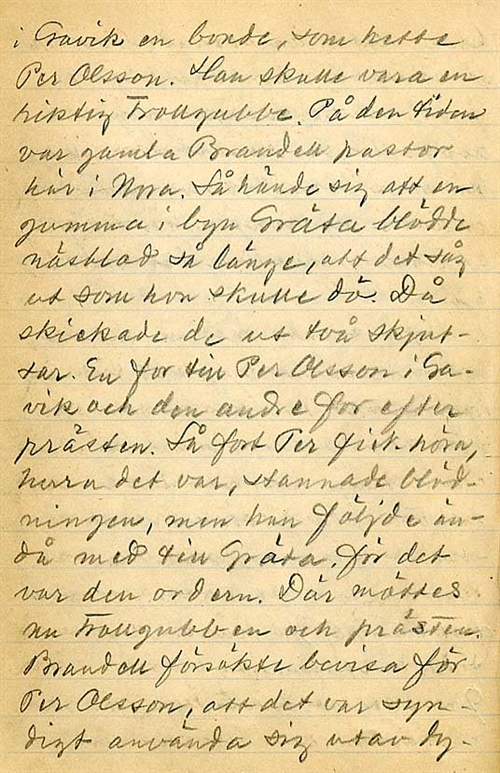 i Gavik en bonde, som hette
Per Olsson. Han skulle vara en
riktig Trollgubbe. På den tiden
var gamla Brandell pastor
här i Nora. Så hände sig att en
gumma i byn Gräta blödde
näsblod så länge, att det såg
ut som hon skulle dö. Då
skickade de ut två skjut-
sar. En for till Per Olsson i Ga-
vik och den andre for efter
prästen. Så fort Per fick höra,
hurra det var, stannade blöd-
ningen, men han följde än-
då med till Gräta, för det
var den ordern. Där möttes
nu Trollgubben och prästen.
Brandell försökte bevisa för
Per Olsson, att det var syn-
digt använda sig utav dy-